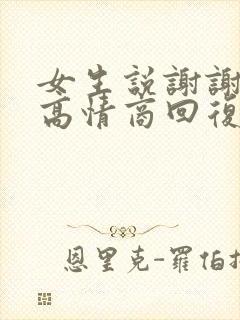 女生説謝謝
高情商回復
恩里克-羅伯